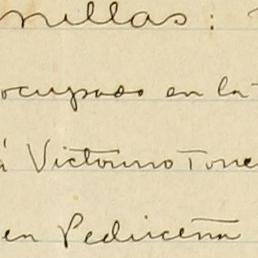 nillas:
ocupado en la
á Victorino Torre
en Pedriceña